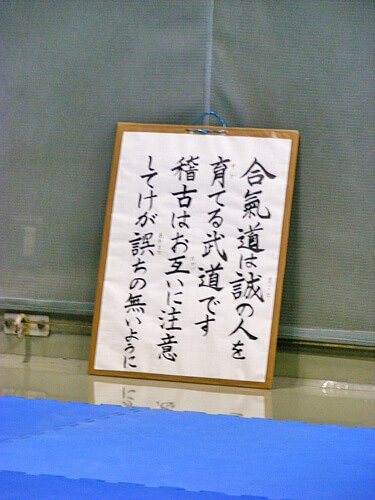 合氣道は誠の人を
育てる武道です
稽古はお互いに注意
してけが誤ちの無いように